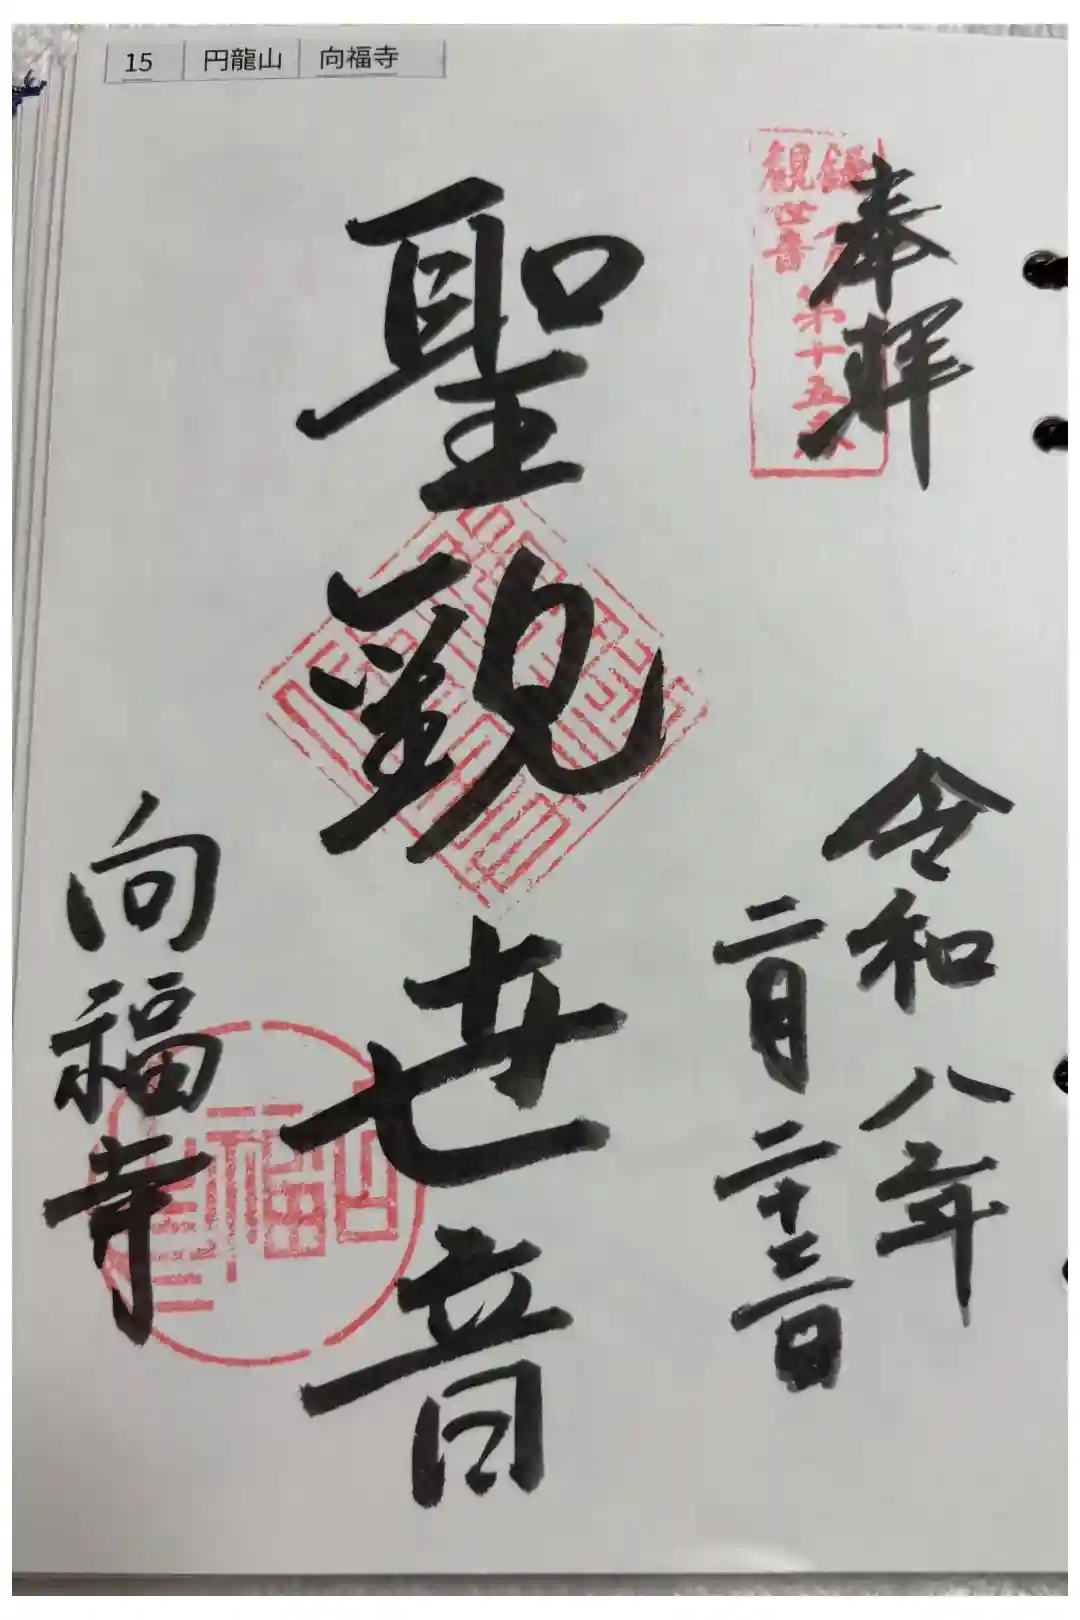 15 円龍山 向福寺
奉拝
観世音
第十五
令和八年
二月二十三日
聖観世音
向福寺